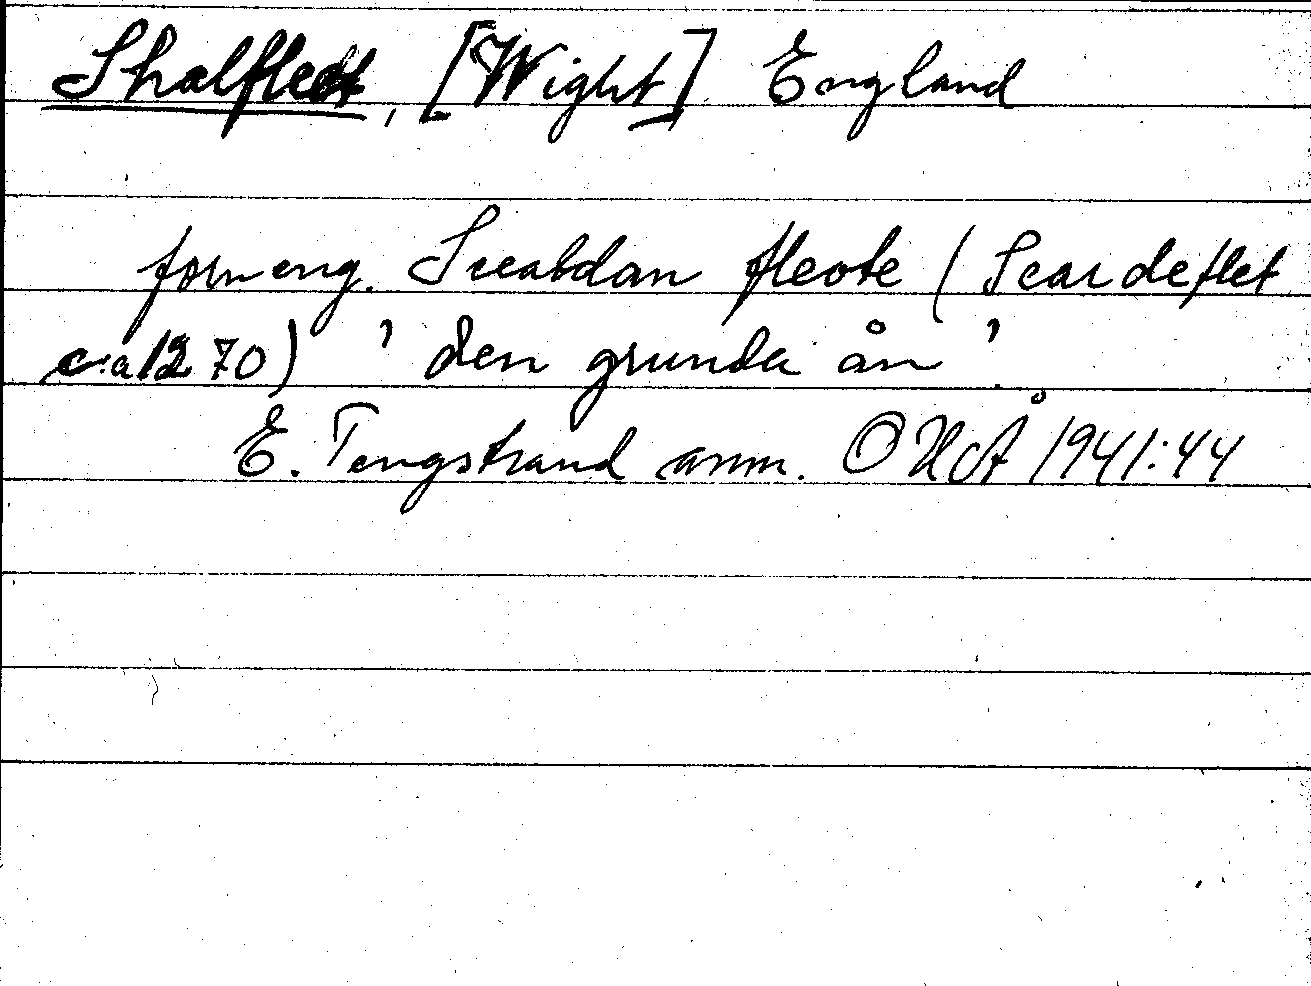 Shalfleet, [Wight] England
forneng. Scealdan fleote (Scardeflet
c:a 1270) 'den grunda ån'.
E. Tengstrand anm. OUÅ 1941:44